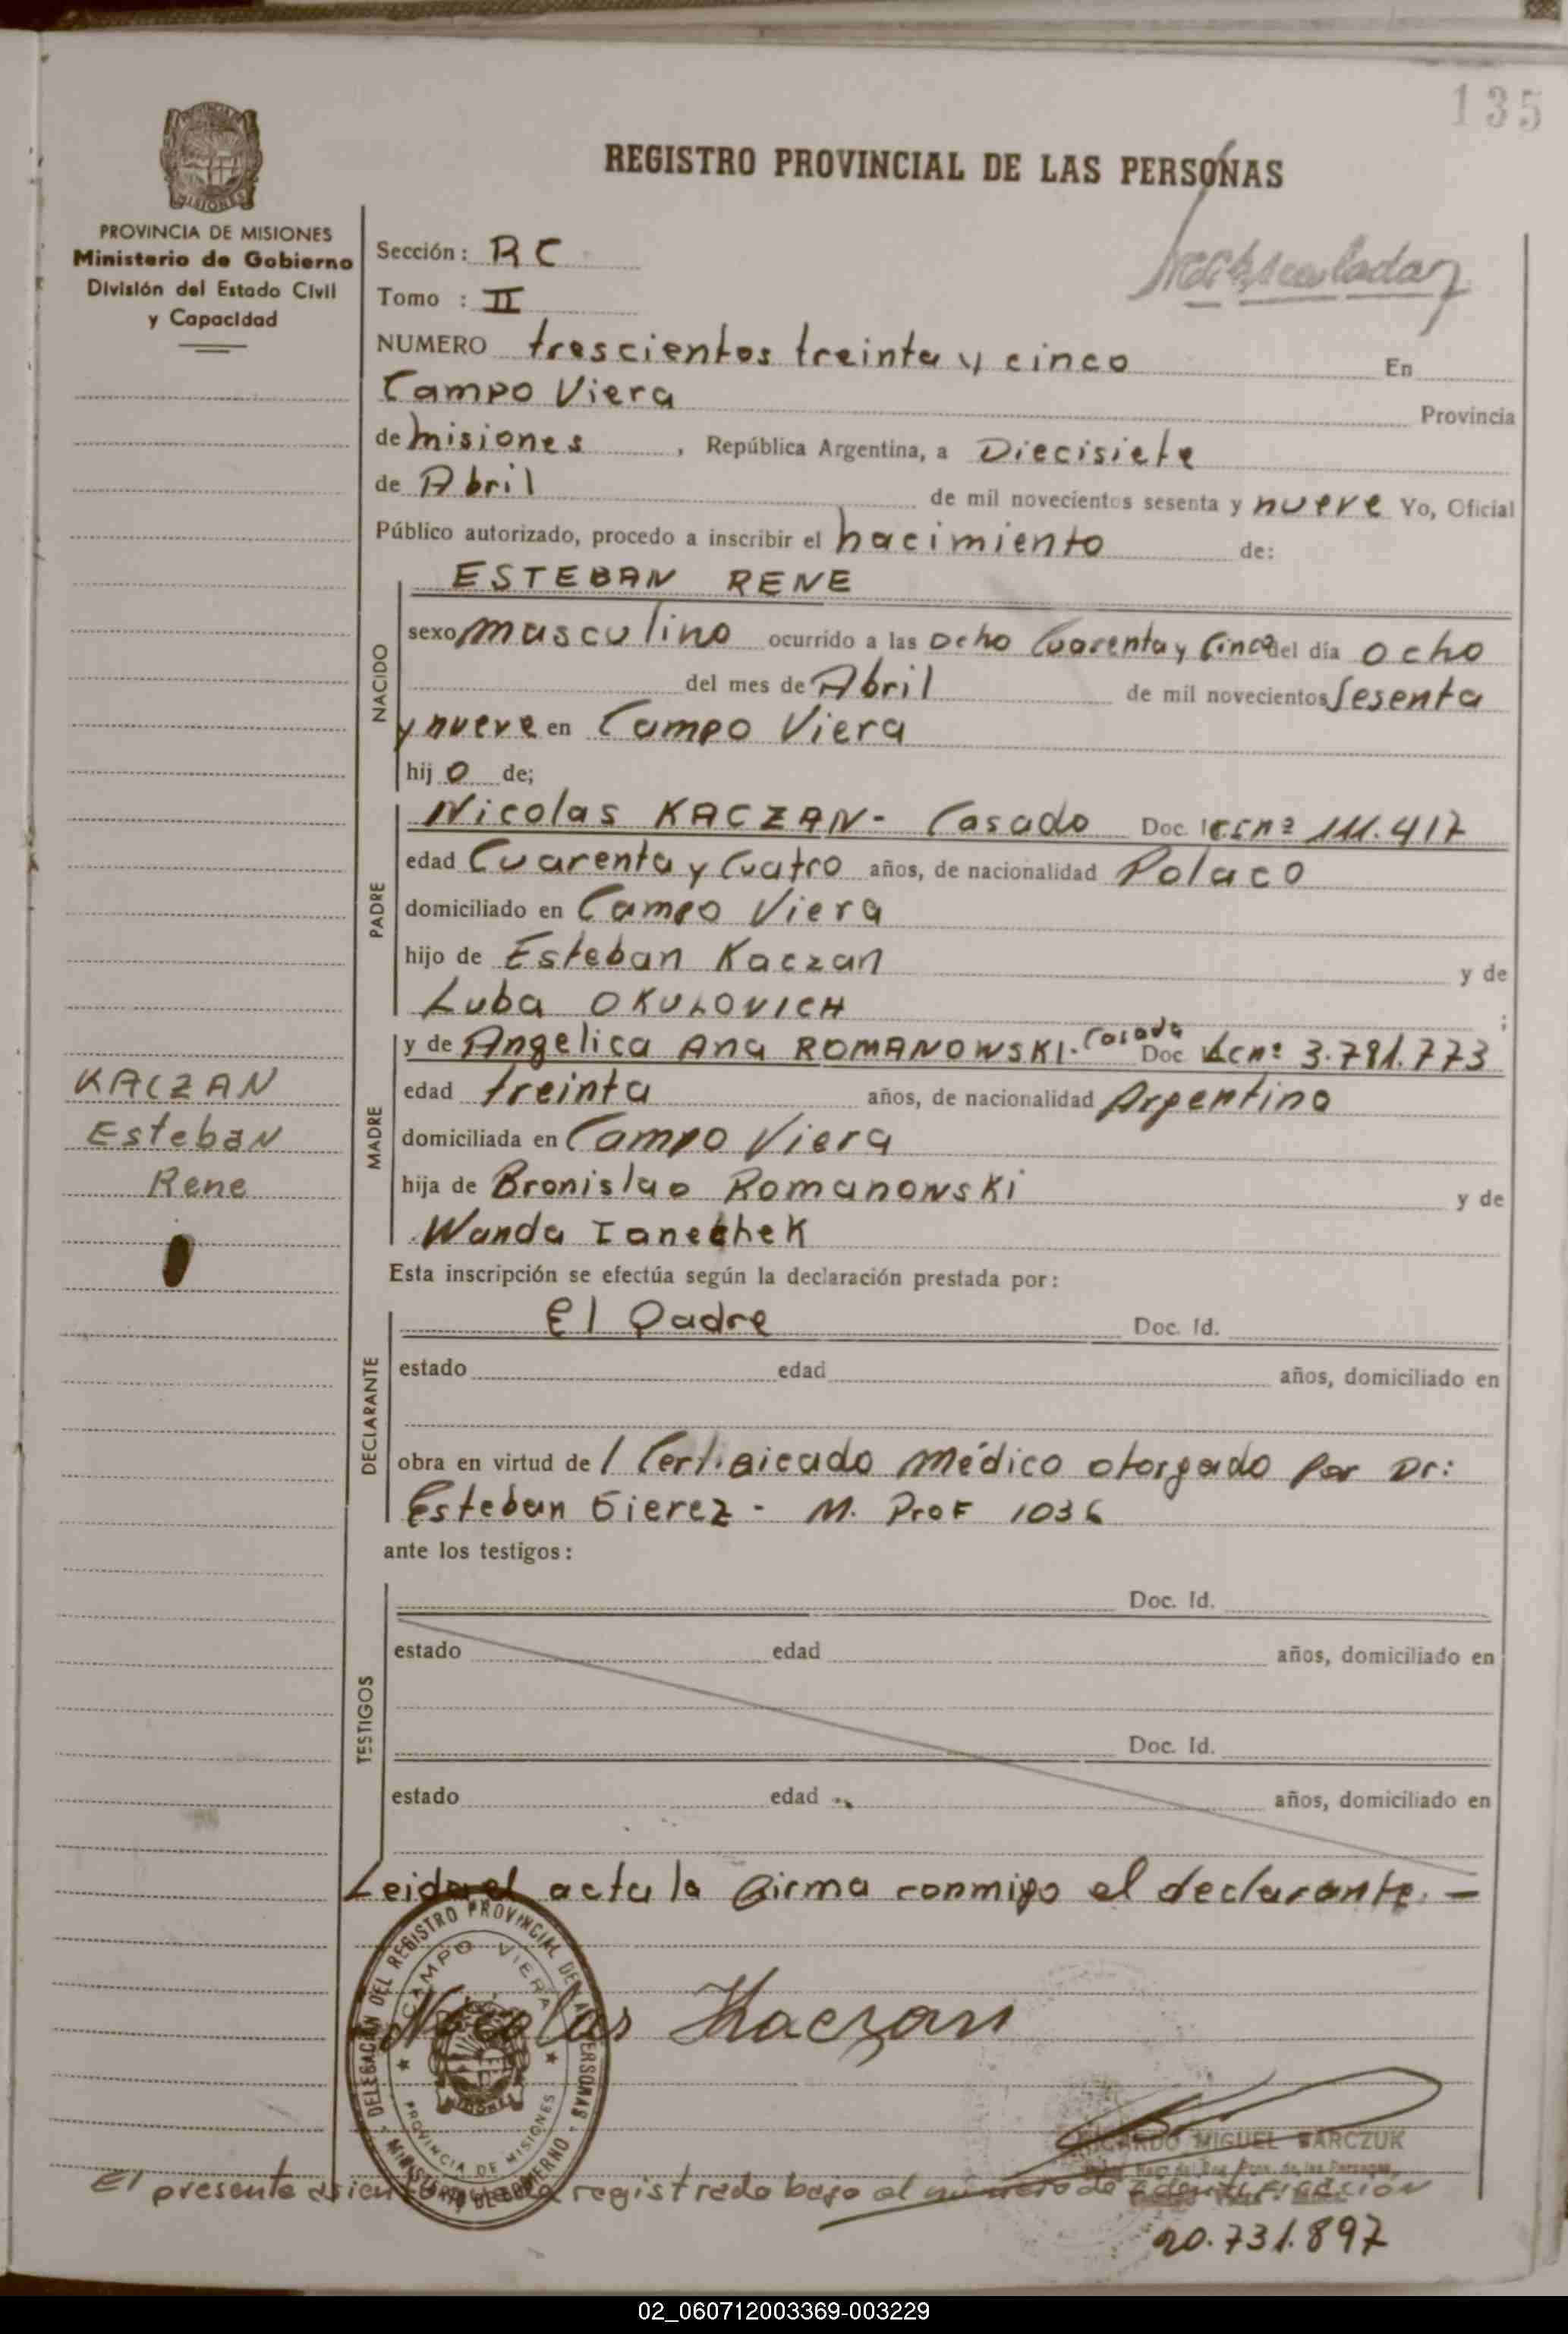 135
REGISTRO PROVINCIAL DE LAS PERSONAS
PROVINCIA DE MISIONES
Ministerio de Gobierno
División del Estado Civil
y Capacidad
Sección: RC
Tomo : II
NUMERO trescientos treinta y cinco En
Campo Viera Provincia
de misiones, República Argentina, a Diecisiete
de Abril de mil novecientos sesenta y nueve Yo, Oficial
Público autorizado, procedo a inscribir el nacimiento de:
ESTEBAN RENE
NACIDO
sexo masculino ocurrido a las ocho Cuarenta y Cinco del día ocho
del mes de Abril de mil novecientos Sesenta
y nueve en Campo Viera
hij o de;
PADRE
Nicolas KACZAN- Casado Doc. nº 111.417
edad Cuarenta y Cuatro años, de nacionalidad Polaco
domiciliado en Campo Viera
hijo de Esteban Kaczan y de
Luba OKULOVICH ;
MADRE
y de Angelica Ana ROMANOWSKI- Casada Doc Lcnº 3.781.773
edad treinta años, de nacionalidad Argentina
domiciliada en Campo Viera
hija de Bronislao Romanowski y de
Wanda Ianechek
KACZAN
Esteban
Rene
Esta inscripción se efectúa según la declaración prestada por:
DECLARANTE
El Padre Doc. Id.
estado edad años, domiciliado en
obra en virtud de 1 Certificado médico otorgado por Dr:
Esteban Gierez - M. Prof 1036
ante los testigos:
TESTIGOS
Doc. Id.
estado edad años, domiciliado en
Doc. Id.
estado edad años, domiciliado en
Leida el acta la firma conmigo el declarante. -
DELEGACION DEL REGISTRO PROVINCIAL DE LAS PERSONAS
CAMPO VIERA
PROVINCIA DE MISIONES
MINISTERIO DE GOBIERNO
Nicolas Kaczan
RICARDO MIGUEL BARCZUK
El presente asiento registrado bajo el numero de identificación
20.731.897
02_060712003369-003229